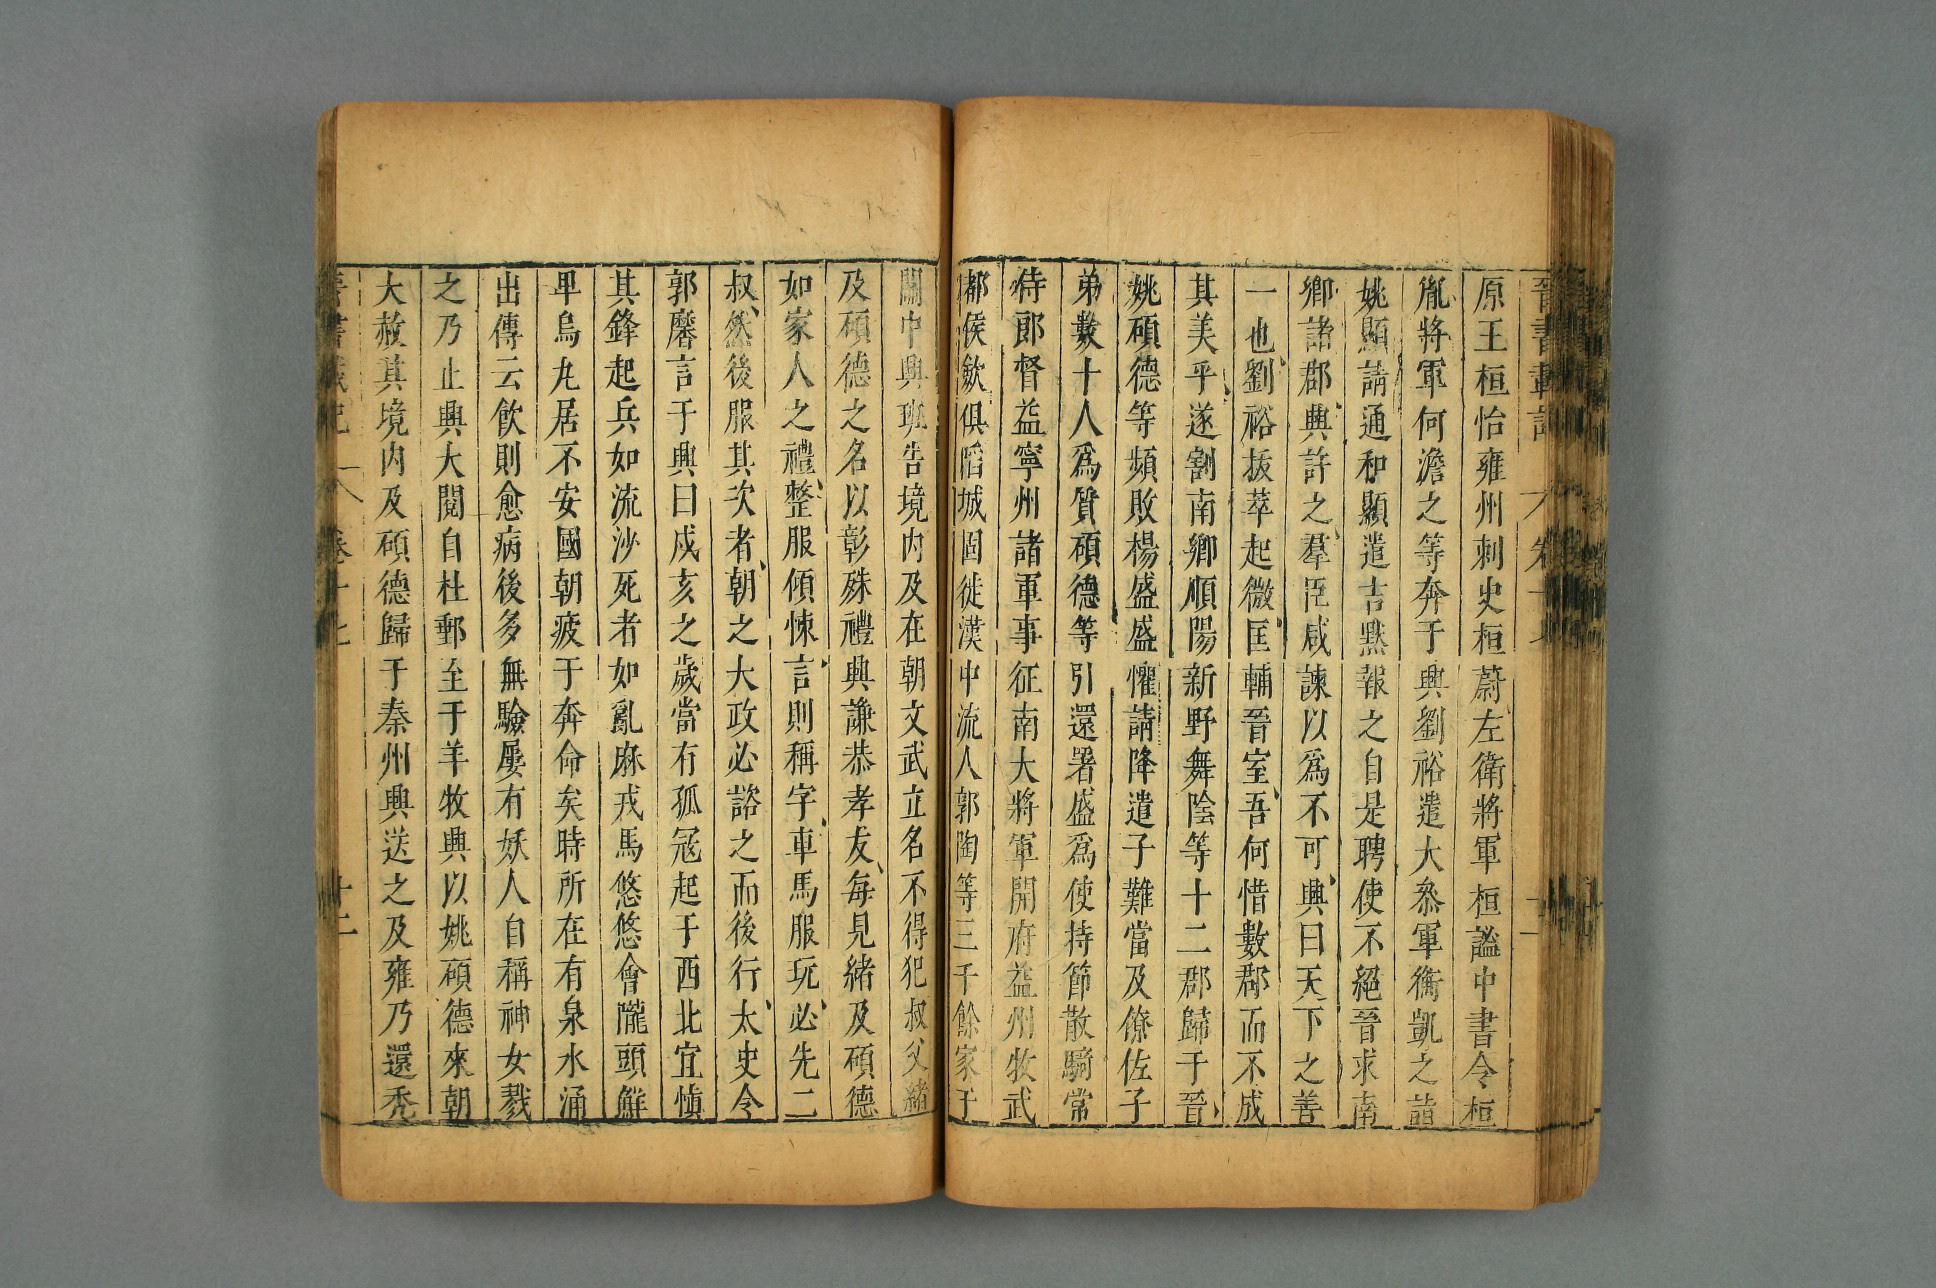 晉書載記
卷十七
原王桓怡雍州刺史桓蔚左衛將軍桓謐中書令桓
胤將軍何澹之等奔于興劉裕遣大叅軍衡凱之詣
姚顯請通和顯遣吉黙報之自是聘使不絕晉求南
鄉諸郡興許之羣臣咸諫以爲不可興曰天下之善
一也劉裕拔萃起微匡輔晉室吾何惜數郡而不成
其美乎遂割南鄉順陽新野舞陰等十二郡歸于晉
姚碩德等頻敗楊盛盛懼請降遣子難當及僚佐子
弟數十人爲質碩德等引還署盛爲使持節散騎常
侍郎督益寧州諸軍事征南大將軍開府益州牧武
都侯歛俱陷城固徙漢中流人郭陶等三千餘家于
關中興班告境内及在朝文武立名不得犯叔父緒
及碩德之名以彰殊禮興謙恭孝友每見緒及碩德
如家人之禮整服傾悚言則稱字車馬服玩必先二
叔然後服其次者朝之大政必諮之而後行太史令
郭黁言于興曰戍亥之歲當有孤冦起于西北宜愼
其鋒起兵如流沙死者如亂麻戎馬悠悠會隴頭鮮
卑烏丸居不安國朝疲于奔命矣時所在有泉水涌
出傳云飲則愈病後多無驗屢有妖人自稱神女戮
之乃止興大閱自杜郵至于羊牧興以姚碩德來朝
大赦其境内及碩德歸于秦州興送之及雍乃還秃
晉書載記
卷十七
十二